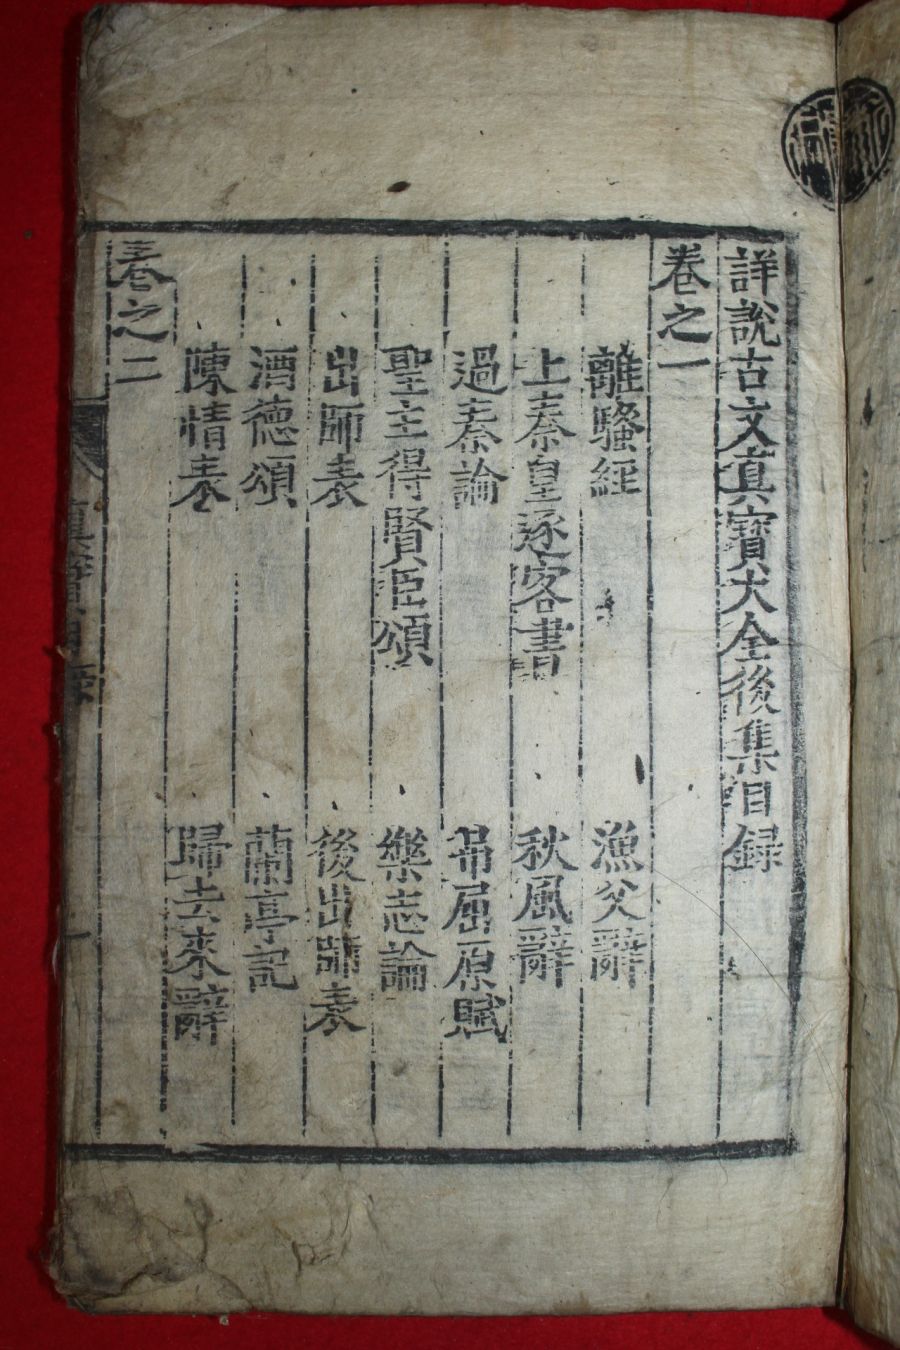 詳說古文真寶大全後集目録
卷之一
離騷經 漁父辭
上秦皇逐客書 秋風辭
過秦論 吊屈原賦
聖主得賢臣頌 樂志論
出師表 後出師表
酒德頌 蘭亭記
陳情表 歸去來辭
卷之二